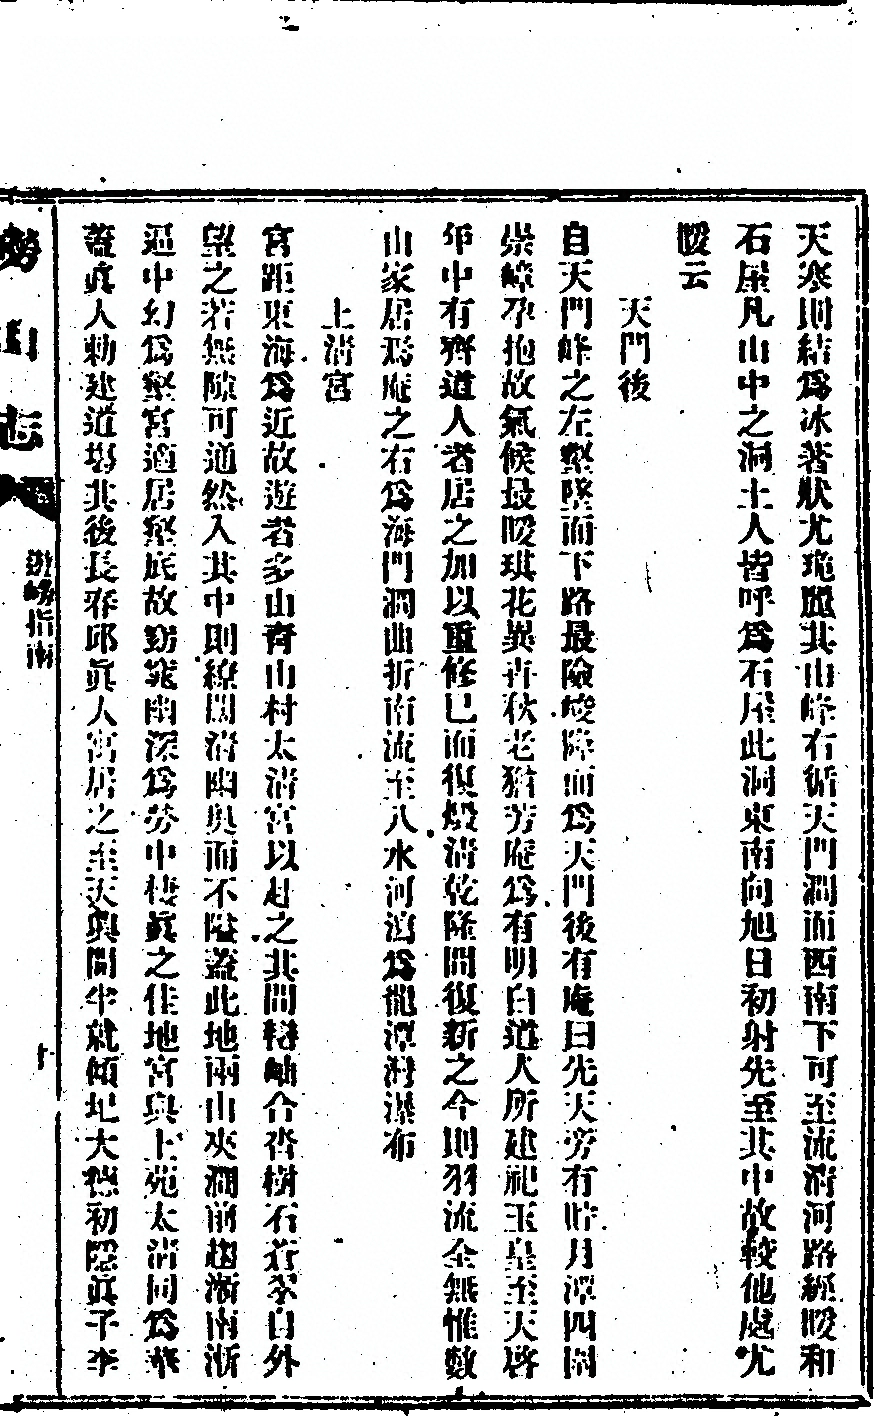 天寒則結爲冰著狀尤瑰麗其山峰右循天門澗而西南下可至流淸河路經暖和
石屋凡山中之洞土人皆呼爲石屋此洞東南向旭日初射先至其中故較他處尤
暖云
天門後
自天門峰之左壑墜而下路最險峻降而爲天門後有庵曰先天旁有貯月潭四圍
崇嶂孕抱故氣候最暖琪花異卉秋老猶芳庵爲有明白道人所建祀玉皇至天啓
年中有齊道人者居之加以重修已而復燬淸乾隆間復新之今則羽流全無惟數
山家居焉庵之右爲海門澗曲折南流至八水河瀉爲龍潭灣瀑布
上淸宮
宮距東海爲近故遊者多山靑山村太淸宮以赴之其間巒岫合沓樹石蒼翠自外
望之若無隙可通然入其中則繚闊淸幽奧而不隘蓋此地兩山夾澗前趨漸南漸
逼中幻爲壑宮適居壑底故窈窕幽深爲勞中棲眞之佳地宮與上苑太淸同爲華
蓋眞人勅建道塲其後長春邱眞人寓居之至天與間半就傾圮大德初隱眞子李
勞山志
遊嶗指南
十